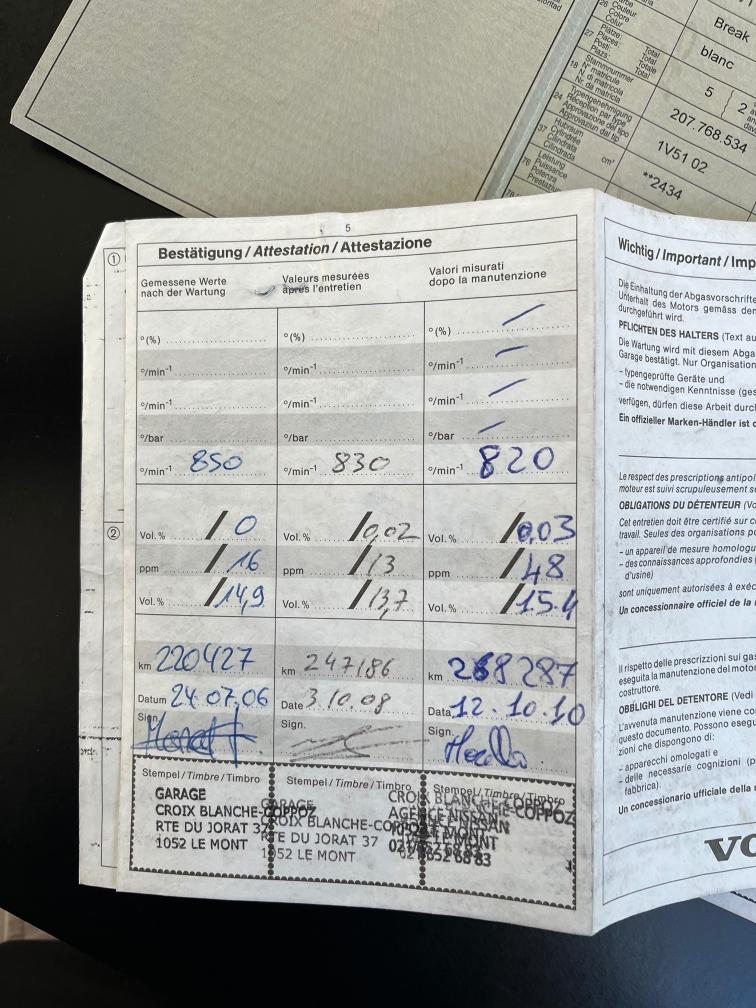 Break
blanc
5
2
207.768.534
1V51 02
**2434
26 Couleur
Colore
Colur
27 Places: Total
Posti: Totale
Plazs: Total
18 Stammnummer
N° matricule
N. di matricola
Nr. da matricla
24 Typengenehmigung
Réception par type
Approvazione del tipo
Approvaziun dal tip
37 Hubraum
Cylindrée
Cilindrata
Cilindrada
cm³
76 Leistung
Puissance
Potenza
5
Bestätigung / Attestation / Attestazione
①
Gemessene Werte
nach der Wartung
Valeurs mesurées
après l'entretien
Valori misurati
dopo la manutenzione
°(%) °(%) °(%)
°/min⁻¹ °/min⁻¹ °/min⁻¹
°/min⁻¹ °/min⁻¹ °/min⁻¹
°/bar °/bar °/bar
°/min⁻¹ 850 °/min⁻¹ 830 °/min⁻¹ 820
②
Vol.% / 0 Vol.% / 0,02 Vol.% / 0.03
ppm / 16 ppm / 13 ppm / 48
Vol.% / 14,9 Vol.% / 13,7 Vol.% / 15.4
km 220427 km 247186 km 268287
Datum 24.07.06 Date 3.10.08 Data 12.10.10
Sign. Sign. Sign.
Stempel / Timbre / Timbro Stempel / Timbre / Timbro Stempel / Timbre / Timbro
GARAGE
CROIX BLANCHE-COPPOZ
RTE DU JORAT 37
1052 LE MONT
GARAGE
CROIX BLANCHE-COPPOZ
RTE DU JORAT 37
1052 LE MONT
CROIX BLANCHE-COPPOZ
AGENCE NISSAN
LE MONT
Wichtig / Important / Imp
Die Einhaltung der Abgasvorschrifte
Unterhalt des Motors gemäss den
durchgeführt wird.
PFLICHTEN DES HALTERS (Text au
Die Wartung wird mit diesem Abga
Garage bestätigt. Nur Organisation
– typengeprüfte Geräte und
– die notwendigen Kenntnisse (ges
verfügen, dürfen diese Arbeit durch
Ein offizieller Marken-Händler ist d
Le respect des prescriptions antipol
moteur est suivi scrupuleusement se
OBLIGATIONS DU DÉTENTEUR (Vo
Cet entretien doit être certifié sur c
travail. Seules des organisations po
– un appareil de mesure homologu
– des connaissances approfondies (
d'usine)
sont uniquement autorisées à exéc
Un concessionnaire officiel de la
Il rispetto delle prescrizzioni sui gas
eseguita la manutenzione del motor
costruttore.
OBBLIGHI DEL DETENTORE (Vedi
L'avvenuta manutenzione viene con
questo documento. Possono esegu
zioni che dispongono di:
– apparecchi omologati e
– delle necessarie cognizioni (p
fabbrica).
Un concessionario ufficiale della
VO